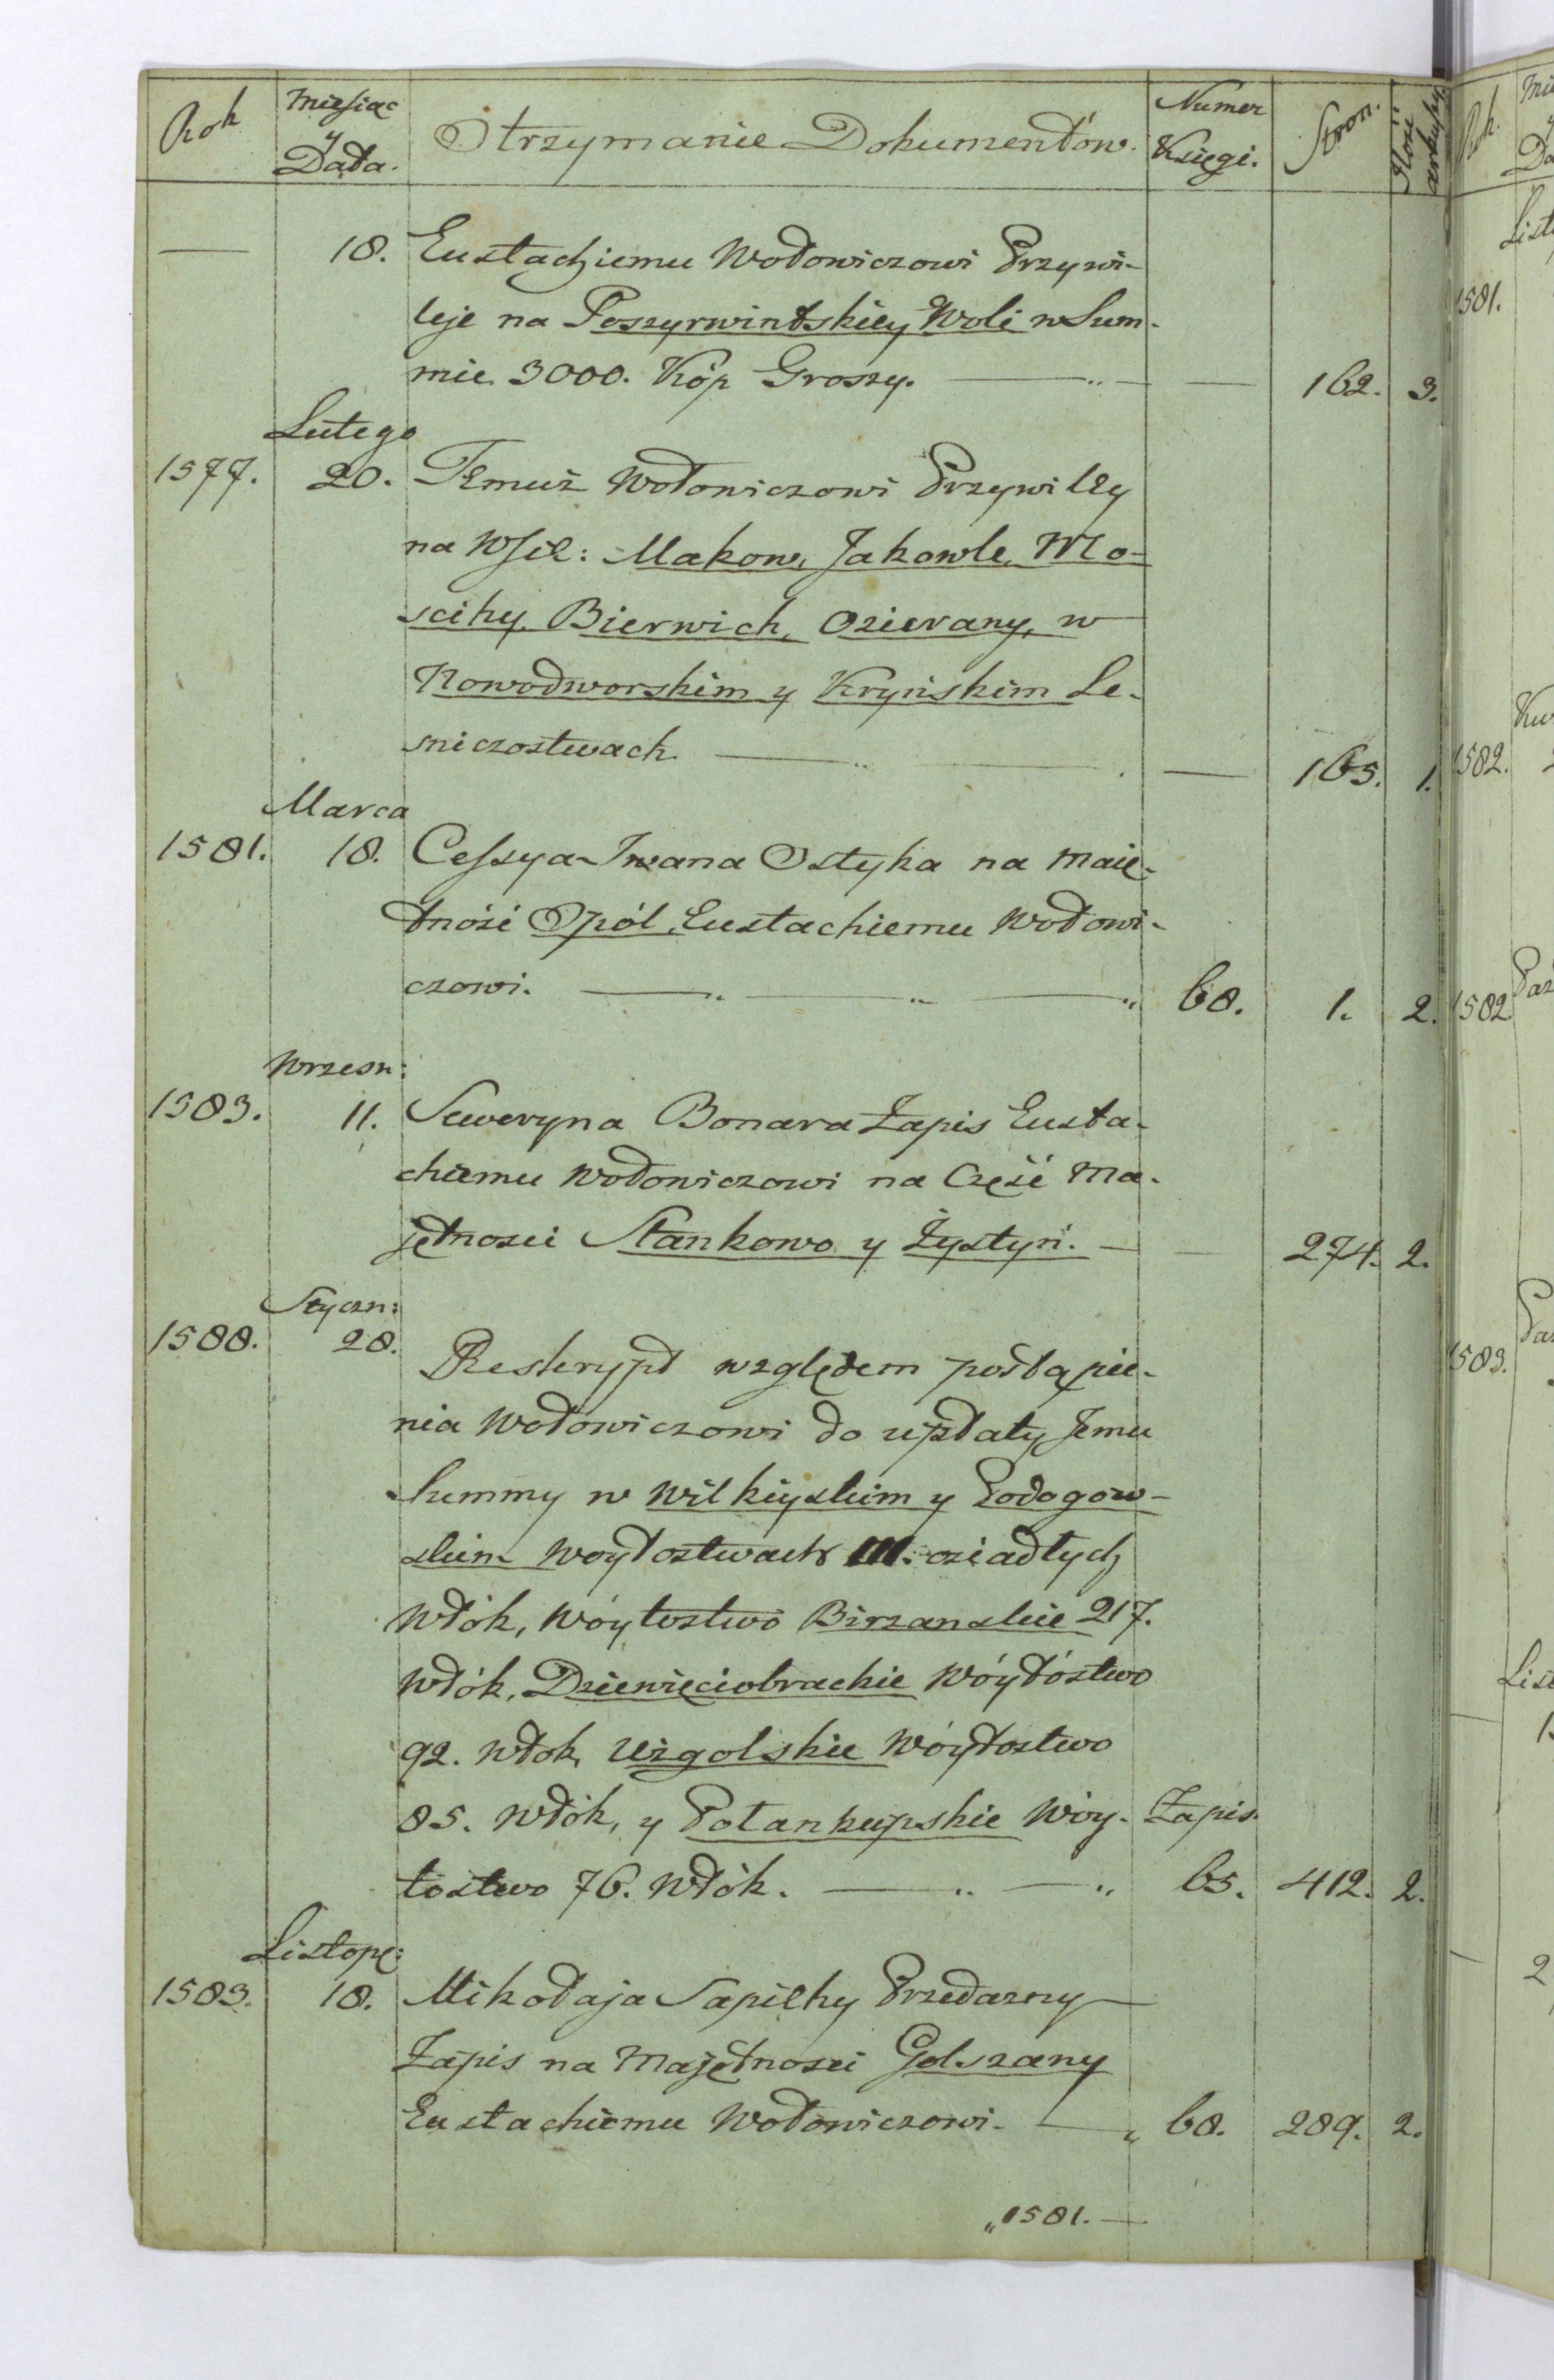 Rok | Miesiąc y Data. | Otrzymanie Dokumentów. | Numer Księgi. | Stron. | Ilość arkuszy
— 18. Eustachiemu Wołowiczowi Przywi-
leje na Poszyrwintskiey Woli w Sum-
mie 3000. Kóp Groszy. — „ — — 162. 3.
Lutego
1577. 20. Temuż Wołowiczowi Przywiley
na Wsie: Makow, Jakowle, Mo-
scihy, Bierwich, Ozierany, w
Nowodworskim y Kryńskim Le-
sniczostwach. — „ — — 165. 1.
Marca
1581. 18. Cessya Iwana Ostyka na Maię-
tność Opól, Eustachiemu Wołowi-
czowi. — „ — „ — „ 68. 1. 2.
Wrzesn:
1583. 11. Seweryna Bonara Zapis Eusta-
chiemu Wołowiczowi na Część Ma-
jętnosci Stankowo y Żystyń. — — 274. 2.
Styczn:
1588. 28. Reskrypt względem postąpie-
nia Wołowiczowi do upłaty Jemu
Summy w Wilkiyskim y Podogow-
skim Woytostwach 111. osiadłych
Włók, Wóytostwo Birzanskie 217.
Włók, Dziewięciobrackie Wóytóstwo
92. Włok, Użgolskie Wóytostwo
85. Włók, y Połankupskie Wóy- Zapis.
tostwo 76. Włók. — „ — „ 65. 412. 2.
Listopa:
1583. 18. Mikołaja Sapiehy Przedazny
Zapis na Majętnosci Golszany
Eustachiemu Wołowiczowi. — „ 68. 289. 2.
„1581. —